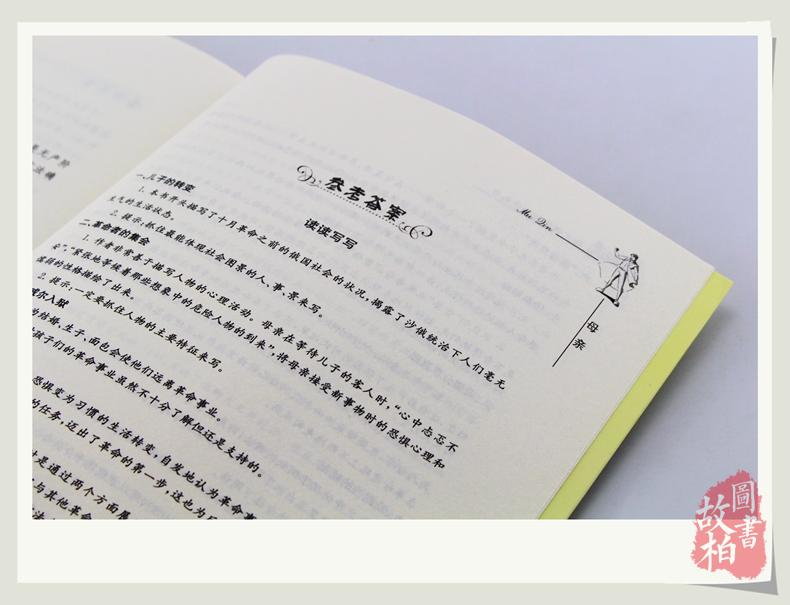 参考答案
读读写写
一、儿子的转变
1. 本书开头描写了十月革命之前的俄国社会的状况，揭露了沙俄统治下人们毫无
生气的生活状态。
2. 提示：抓住最能体现社会图景的人、事、景来写。
二、革命者的集会
1. 作者非常善于描写人物的心理活动。母亲在等待儿子的客人时，“心中忐忑不
安”，“紧张地等候着那些想象中的危险人物的到来”，将母亲接受新事物时的恐惧心理和
懦弱的性格描绘了出来。
2. 提示：一定要抓住人物的主要特征来写。
维尔入狱
结婚，生子，面也会使他们远离革命事业。
孩子们的革命事业虽然不十分了解但还是支持的。
恐惧变为习惯的生活转变，自发地认为革命事
的任务，迈出了革命的第一步，这也为
是通过两个方面展
与其他革命
母亲
是无产阶
故柏
圖書